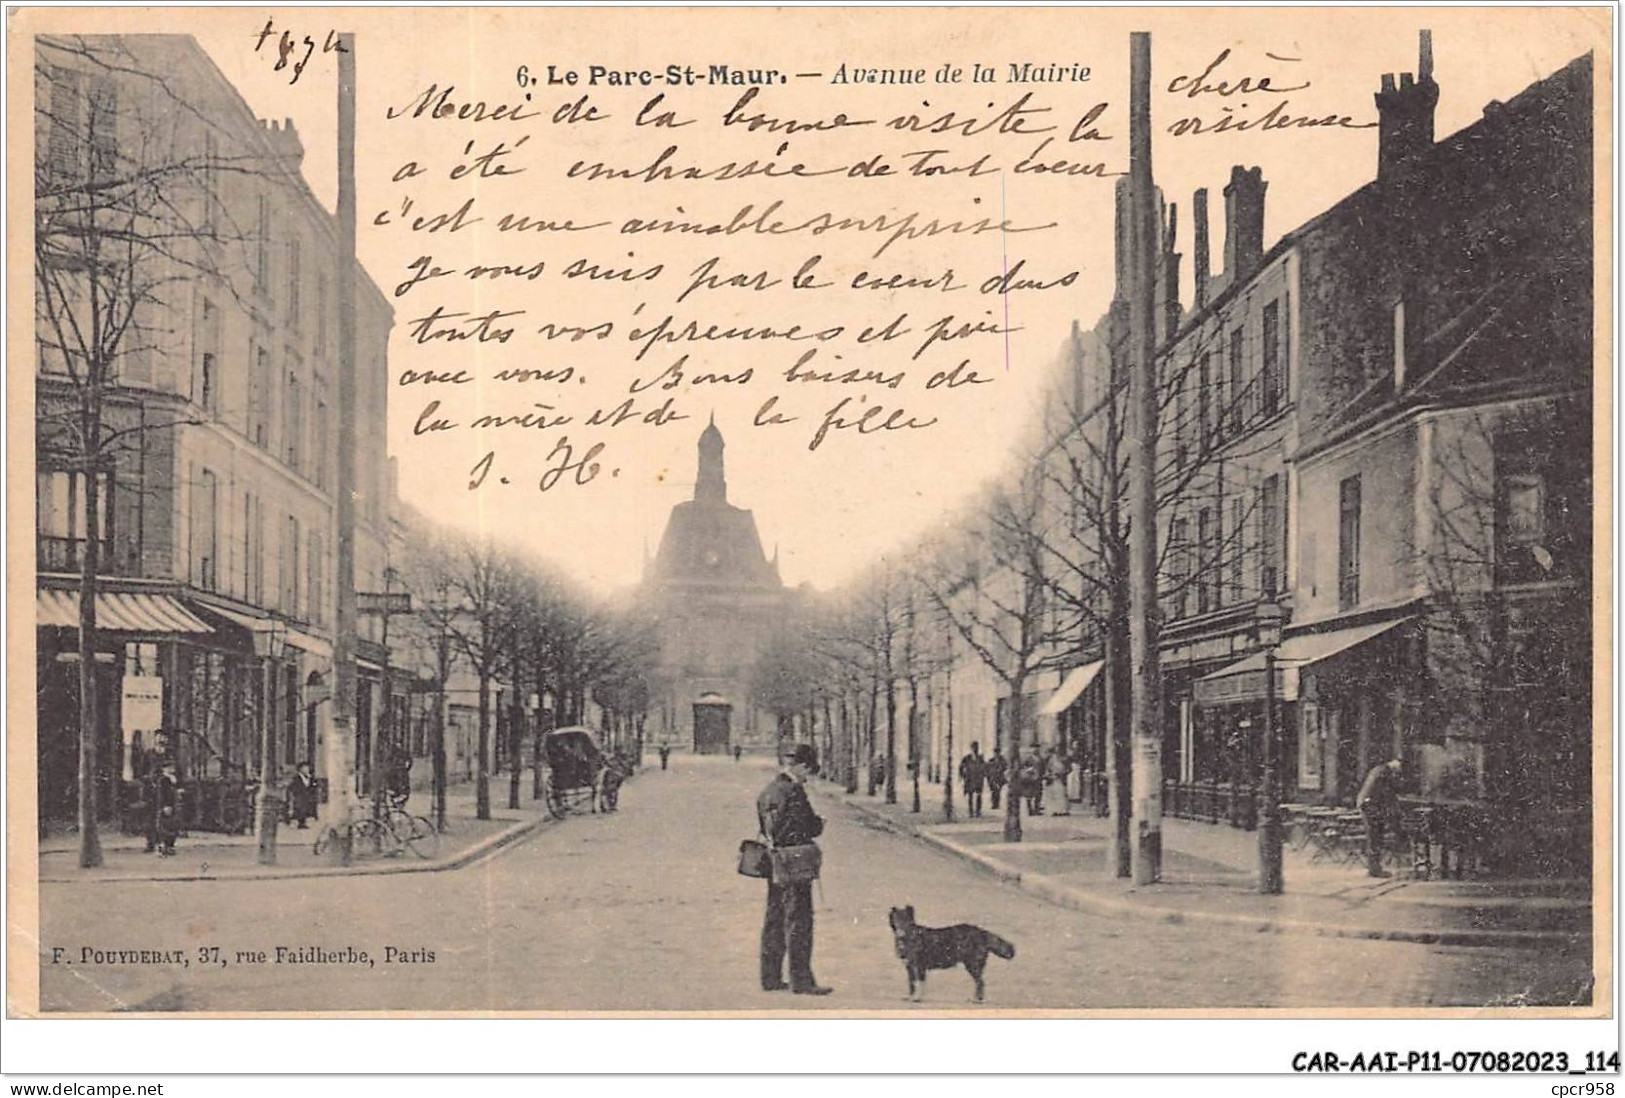 6. Le Parc-St-Maur. — Avenue de la Mairie
Merci de la bonne visite, la chère visiteuse
a été embrassée de tout cœur
c'est une aimable surprise
Je vous suis par le cœur dans
toutes vos épreuves et prie
avec vous. Bons baisers de
la mère et de la fille
J. H.
F. POUYDEBAT, 37, rue Faidherbe, Paris
CAR-AAI-P11-07082023_114
www.delcampe.net
cpcr958